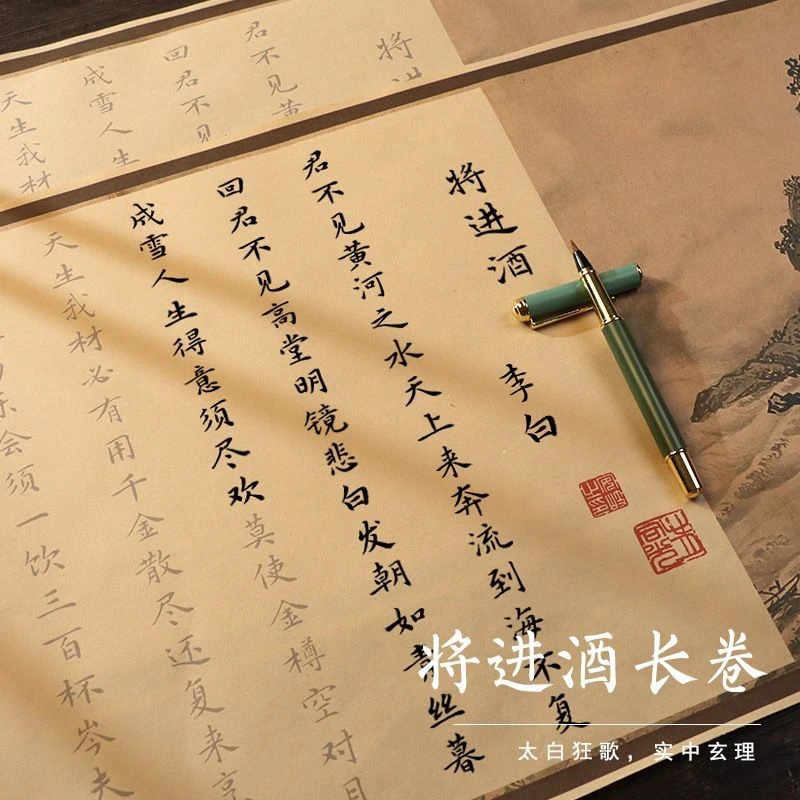 将进
君不见黄
回君不见
成雪人生
天生我材
将进酒 李白
君不见黄河之水天上来奔流到海不复
回君不见高堂明镜悲白发朝如青丝暮
成雪人生得意须尽欢莫使金樽空对月
天生我材必有用千金散尽还复来烹
乐会须一饮三百杯岑夫
将进酒长卷
太白狂歌，实中玄理